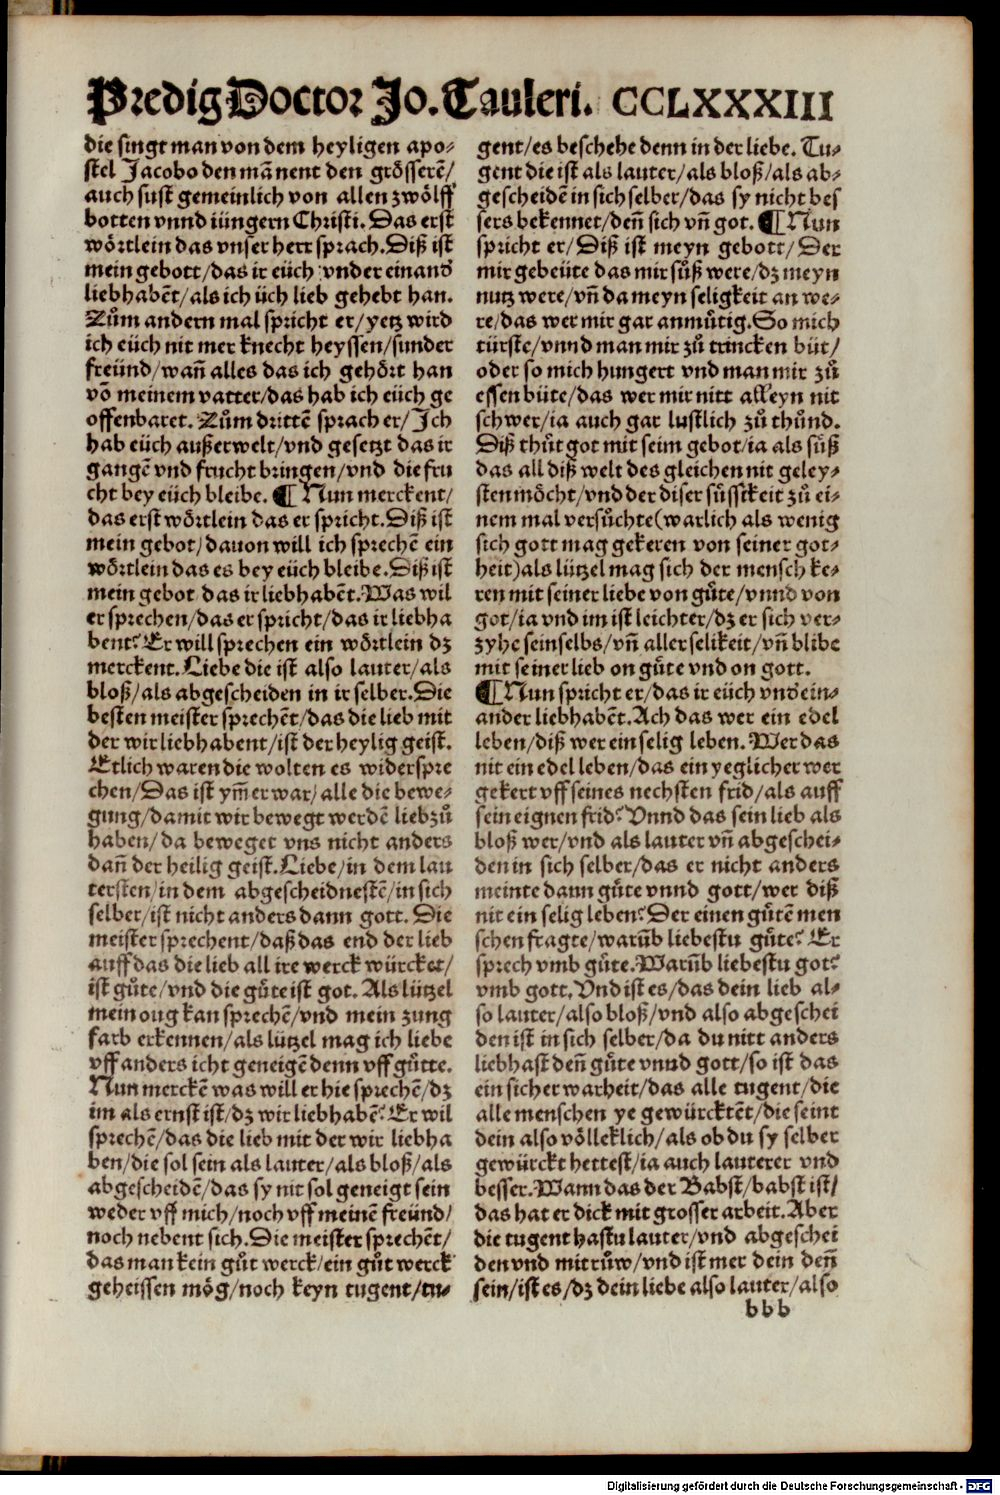 Predig Doctor Jo. Tauleri. CCLXXXIII
die singt man von dem heyligen apo-
stel Jacobo den mā nent den grösserē/
auch sust gemeinlich von allen zwölff
botten vnnd iüngern Christi. Das erst
wörtlein das vnser herr sprach. Diß ist
mein gebott/das ir eüch vnder einand
liebhabēt/als ich üch lieb gehebt han.
Zům andern mal spricht er/yetz wird
ich eüch nit mer knecht heyssen/sunder
freünd/wañ alles das ich gehört han
võ meinem vatter/das hab ich eüch ge
offenbaret. Zům drittē sprach er/Ich
hab eüch außerwelt/vnd gesetzt das ir
gangē vnd frucht bringen/vnd die fru
cht bey eüch bleibe. ¶ Nun merckent/
das erst wörtlein das er spricht. Diß ist
mein gebot/dauon will ich sprechē ein
wörtlein das es bey eüch bleibe. Diß ist
mein gebot das ir liebhabēt. Was wil
er sprechen/das er spricht/das ir liebha
bent? Er will sprechen ein wörtlein dz
merckent. Liebe die ist also lauter/als
bloß/als abgescheiden in ir selber. Die
besten meister sprechēt/das die lieb mit
der wir liebhabent/ist der heylig geist.
Etlich waren die wolten es widerspre
chen/Das ist ym̄er war/alle die bewe-
gung/damit wir bewegt werdē liebzů
haben/da beweget vns nicht anders
dañ der heilig geist. Liebe/in dem lau
tersten/in dem abgescheidnestē/in sich
selber/ist nicht anders dann gott. Die
meister sprechent/daß das end der lieb
auff das die lieb all ire werck würcket/
ist gůte/vnd die gůte ist got. Als lützel
mein oug kan sprechē/vnd mein zung
farb erkennen/als lützel mag ich liebe
vff anders icht geneigē denn vff gůtte.
Nun merckē was will er hie sprechē/dz
im als ernst ist/dz wir liebhabē? Er wil
sprechē/das die lieb mit der wir liebha
ben/die sol sein als lauter/als bloß/als
abgescheidē/das sy nit sol geneigt sein
weder vff mich/noch vff meinē freünd/
noch nebent sich. Die meister sprechēt/
das man kein gůt werck/ein gůt werck
geheissen mög/noch keyn tugent/tu-
gent/es beschehe denn in der liebe. Tu-
gent die ist als lauter/als bloß/als ab-
gescheidē in sich selber/das sy nicht bes
sers bekennet/deñ sich vñ got. ¶ Nun
spricht er/Diß ist meyn gebott/Der
mir gebeüte das mir sůß were/dz meyn
nutz were/vñ da meyn seligkeit an we-
re/das wer mir gar anmůtig. So mich
türste/vnnd man mir zů trincken büt/
oder so mich hungert vnd man mir zů
essen büte/das wer mir nitt alleyn nit
schwer/ia auch gar lustlich zů thůnd.
Diß thůt got mit seim gebot/ia als sůß
das all diß welt des gleichen nit geley-
sten möcht/vnd der diser sůssckeit zů ei-
nem mal versůchte(warlich als wenig
sich gott mag gekeren von seiner got-
heit)als lützel mag sich der mensch ke-
ren mit seiner liebe von gůte/vnnd von
got/ia vnd im ist leichter/dz er sich ver-
zyhe sein selbs/vñ aller selikeit/vñ blibe
mit seiner lieb on gůte vnd on gott.
¶ Nun spricht er/das ir eüch vnd ein-
ander liebhabēt. Ach das wer ein edel
leben/diß wer ein selig leben. Wer das
nit ein edel leben/das ein yeglicher wer
gekert vff seines nechsten frid/als auff
sein eignen frid? Vnnd das sein lieb als
bloß wer/vnd als lauter vñ abgeschei-
den in sich selber/das er nicht anders
meinte dann gůte vnnd gott/wer diß
nit ein selig leben? Der einen gůtē men
schen fragte/warūb liebestu gůte? Er
sprech vmb gůte. Warūb liebestu got?
vmb gott. Vnd ist es/das dein lieb al-
so lauter/also bloß/vnd also abgeschei
den ist in sich selber/da du nitt anders
liebhast deñ gůte vnnd gott/so ist das
ein sicher warheit/das alle tugent/die
alle menschen ye gewürcktēt/die seint
dein also völleklich/als ob du sy selber
gewürckt hettest/ia auch lauterer vnd
besser. Wann das der Babst/babst ist/
das hat er dick mit grosser arbeit. Aber
die tugent hastu lauter/vnd abgeschei
den vnd mit růw/vnd ist mer dein deñ
sein/ist es/dz dein liebe also lauter/also
bbb
Digitalisierung gefördert durch die Deutsche Forschungsgemeinschaft - DFG